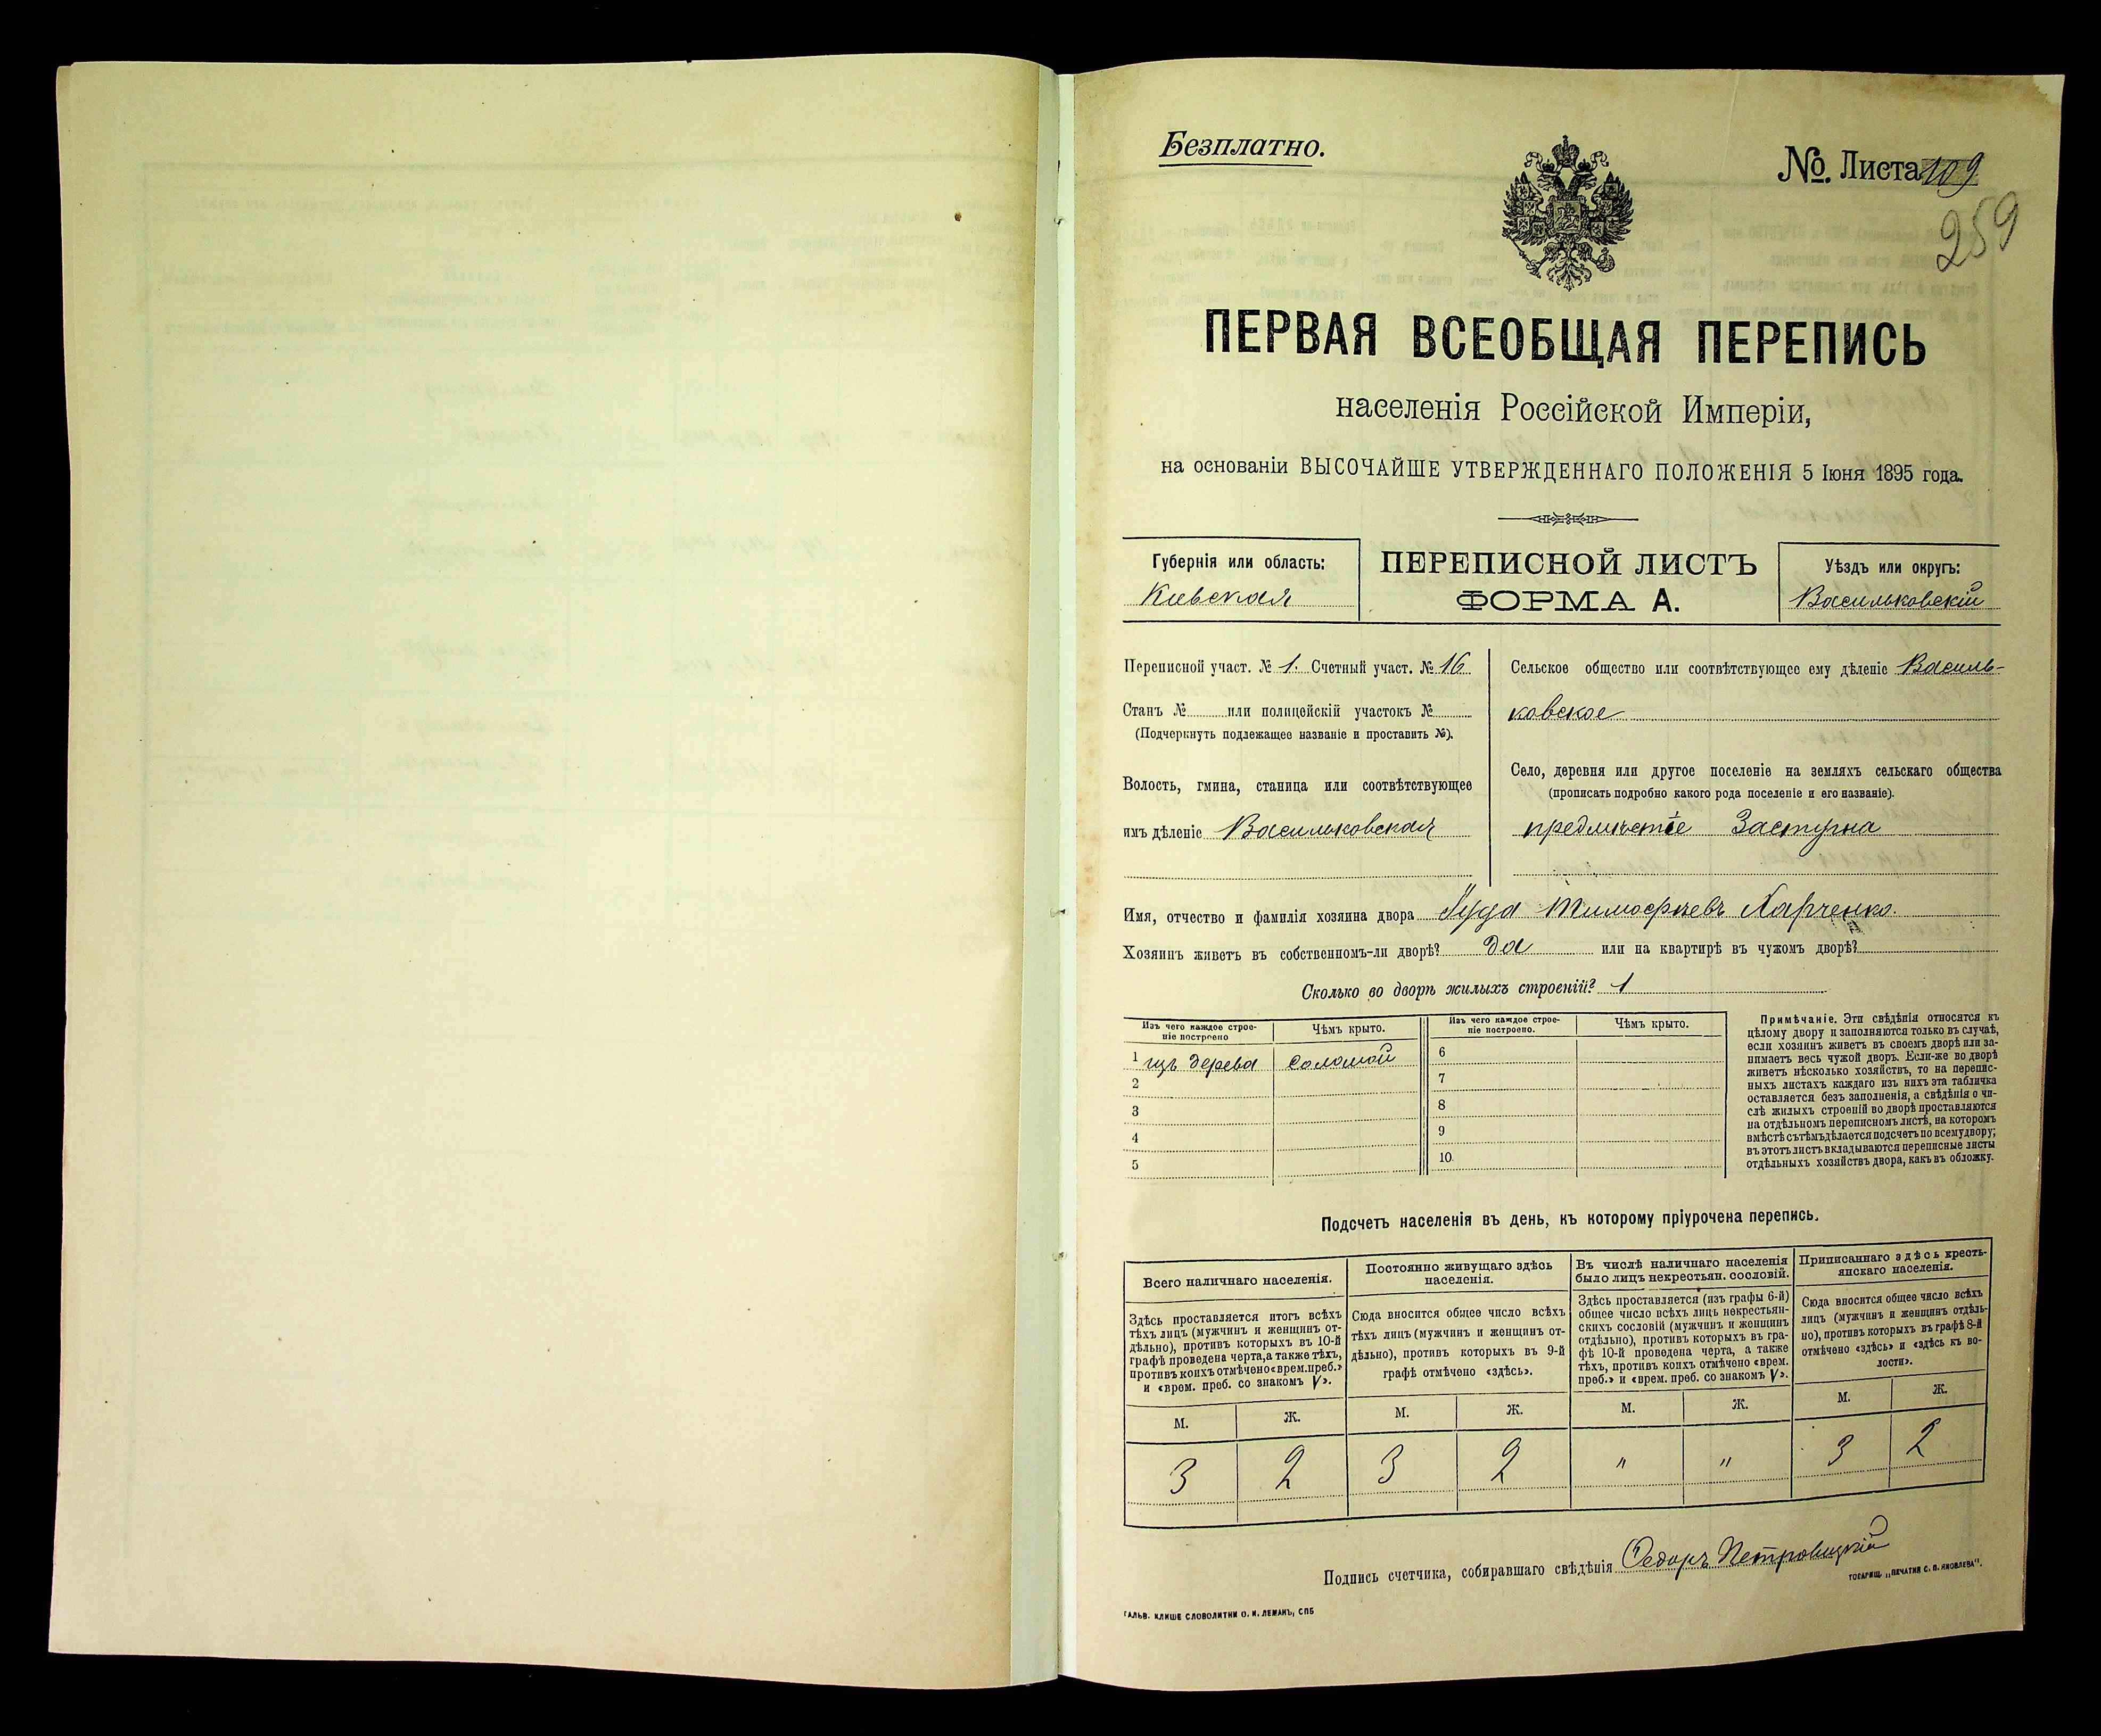 Безплатно.
№. Листа 109
259
ПЕРВАЯ ВСЕОБЩАЯ ПЕРЕПИСЬ
населенія Россійской Имперіи,
на основаніи ВЫСОЧАЙШЕ УТВЕРЖДЕННАГО ПОЛОЖЕНІЯ 5 Іюня 1895 года.
Губернія или область:
Кіевская
ПЕРЕПИСНОЙ ЛИСТЪ
ФОРМА А.
Уѣздъ или округъ:
Васильковскій
Переписной участ. № 1. Счетный участ. № 16
Станъ № или полицейскій участокъ №
(Подчеркнуть подлежащее названіе и проставить №).
Волость, гмина, станица или соотвѣтствующее
имъ дѣленіе Васильковская
Сельское общество или соотвѣтствующее ему дѣленіе Василь-
ковское
Село, деревня или другое поселеніе на земляхъ сельскаго общества
(прописать подробно какого рода поселеніе и его названіе).
предмѣстіе Застугна
Имя, отчество и фамилія хозяина двора Іуда Тимофѣевъ Харченко.
Хозяинъ живетъ въ собственномъ-ли дворѣ? да или на квартирѣ въ чужомъ дворѣ?
Сколько во дворѣ жилыхъ строеній? 1
Изъ чего каждое строе-
ніе построено
Чѣмъ крыто.
Изъ чего каждое строе-
ніе построено.
Чѣмъ крыто.
1 изъ дерева соломой
2
3
4
5
6
7
8
9
10.
Примѣчаніе. Эти свѣдѣнія относятся къ
цѣлому двору и заполняются только въ случаѣ,
если хозяинъ живетъ въ своемъ дворѣ или за-
нимаетъ весь чужой дворъ. Если-же во дворѣ
живетъ нѣсколько хозяйствъ, то на перепис-
ныхъ листахъ каждаго изъ нихъ эта табличка
оставляется безъ заполненія, а свѣдѣнія о чи-
слѣ жилыхъ строеній во дворѣ проставляются
на отдѣльномъ переписномъ листѣ, на которомъ
вмѣстѣ съ тѣмъ дѣлается подсчетъ по всему двору;
въ этотъ листъ вкладываются переписные листы
отдѣльныхъ хозяйствъ двора, какъ въ обложку.
Подсчетъ населенія въ день, къ которому пріурочена перепись.
Всего наличнаго населенія.
Здѣсь проставляется итогъ всѣхъ
тѣхъ лицъ (мужчинъ и женщинъ от-
дѣльно), противъ которыхъ въ 10-й
графѣ проведена черта, а также тѣхъ,
противъ коихъ отмѣчено «врем. преб.»
и «врем. преб. со знакомъ V».
Постоянно живущаго здѣсь
населенія.
Сюда вносится общее число всѣхъ
тѣхъ лицъ (мужчинъ и женщинъ от-
дѣльно), противъ которыхъ въ 9-й
графѣ отмѣчено «здѣсь».
Въ числѣ наличнаго населенія
было лицъ некрестьян. сословій.
Здѣсь проставляется (изъ графы 6-й)
общее число всѣхъ лицъ некрестьян-
скихъ сословій (мужчинъ и женщинъ
отдѣльно), противъ которыхъ въ гра-
фѣ 10-й проведена черта, а также
тѣхъ, противъ коихъ отмѣчено «врем.
преб.» и «врем. преб. со знакомъ V».
Приписаннаго здѣсь кресть-
янскаго населенія.
Сюда вносится общее число всѣхъ
лицъ (мужчинъ и женщинъ отдѣль-
но), противъ которыхъ въ графѣ 8-й
отмѣчено «здѣсь» и «здѣсь къ во-
лости».
М. Ж. М. Ж. М. Ж. М. Ж.
3 2 3 2 " " 3 2
Подпись счетчика, собиравшаго свѣдѣнія Ѳедоръ Петровицкій
ТОВАРИЩ. „ПЕЧАТНЯ С. П. ЯКОВЛЕВА".
ГАЛЬВ. КЛИШЕ СЛОВОЛИТНИ О. И. ЛЕМАНЪ, СПБ